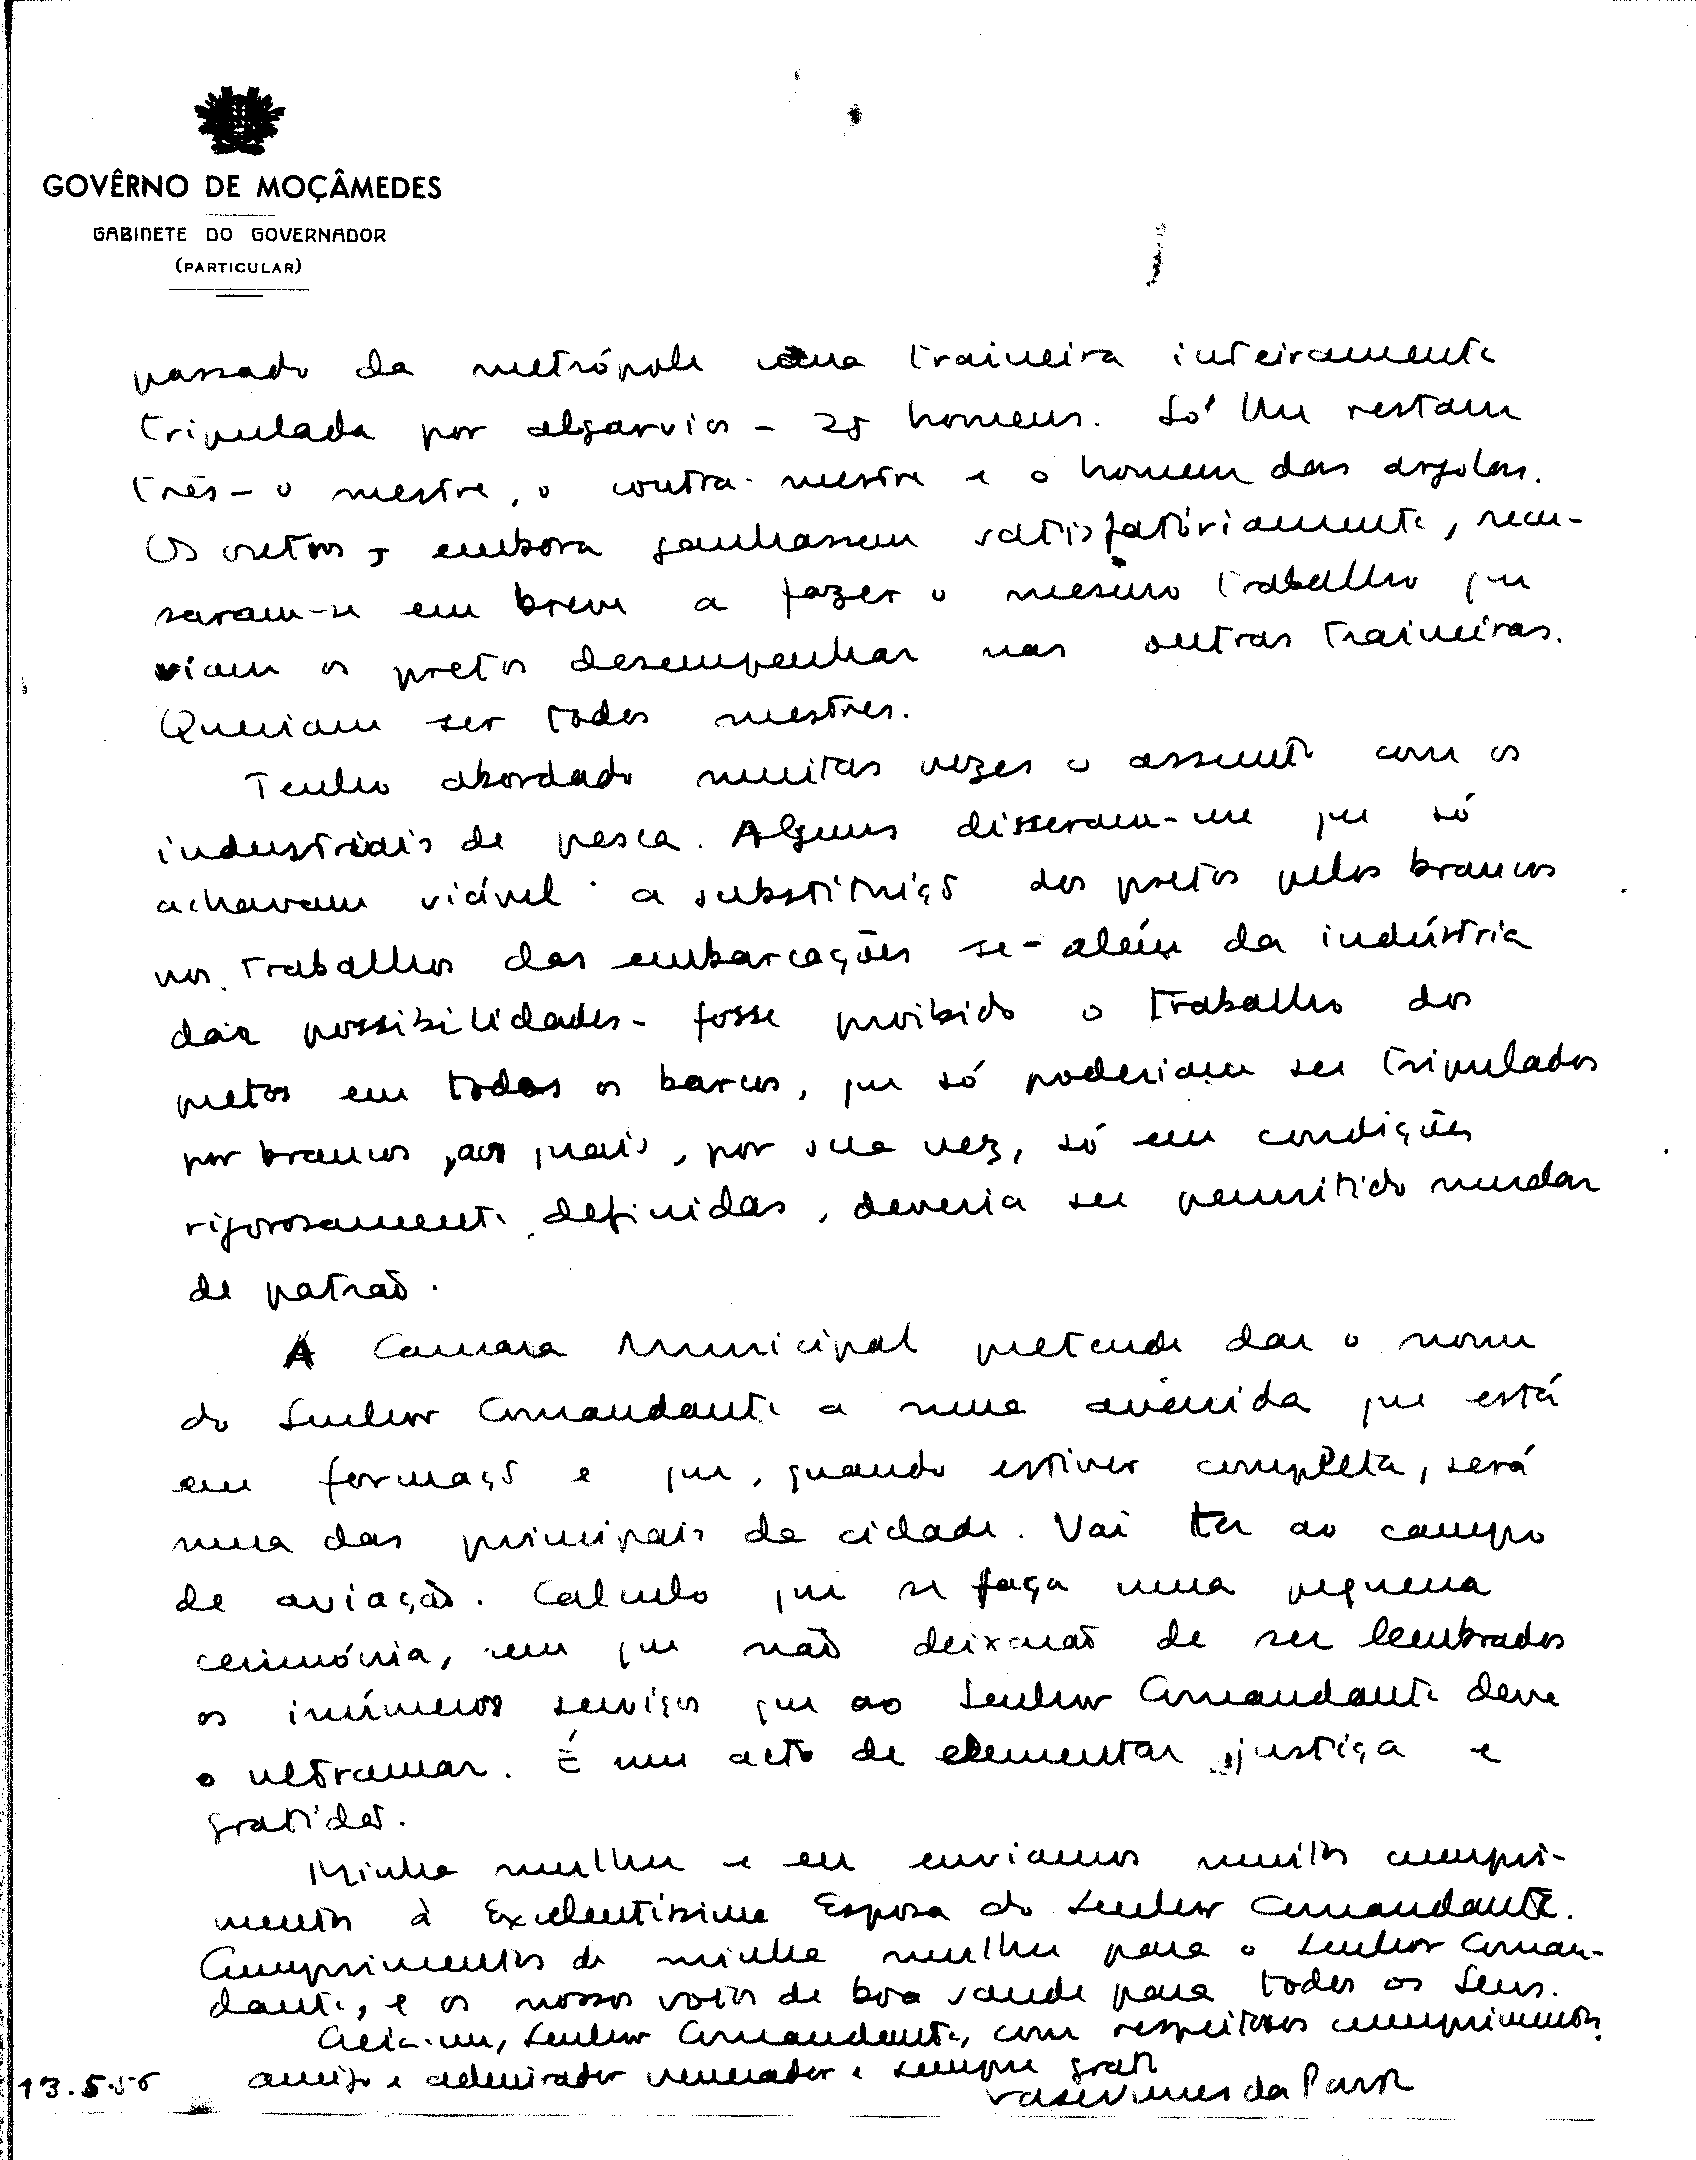 GOVÊRNO DE MOÇÂMEDES
GABINETE DO GOVERNADOR
(PARTICULAR)
passado da metrópole uma traineira inteiramente
tripulada por algarvios - 28 homens. Só lhe restam
três - o mestre, o contra-mestre e o homem das argolas.
Os outros, embora ganhassem satisfatóriamente, recu-
saram-se em breve a fazer o mesmo trabalho que
viam os pretos desempenhar nas outras traineiras.
Queriam ser todos mestres.
Tenho abordado muitas vezes o assunto com os
industriais de pesca. Alguns disseram-me que só
achavam viável a substituição dos pretos pelos brancos
nos trabalhos das embarcações se - além da indústria
dar possibilidades - fosse proibido o trabalho dos
pretos em todos os barcos, que só poderiam ser tripulados
por brancos, aos quais, por sua vez, só em condições
rigorosamente definidas, deveria ser permitido mudar
de patrão.
A Camara Municipal pretende dar o nome
do Senhor Comandante a uma avenida que está
em formação e que, quando estiver completa, será
uma das principais da cidade. Vai ter ao campo
de aviação. Calculo que se faça uma pequena
cerimónia, em que não deixarão de ser lembrados
os inúmeros serviços que ao Senhor Comandante deve
o ultramar. É um acto de elementar justiça e
gratidão.
Minha mulher e eu enviamos muitos cumpri-
mentos à Excelentíssima Esposa do Senhor Comandante.
Cumprimentos de minha mulher para o Senhor Coman-
dante, e os nossos votos de boa saude para todos os Seus.
Creia-me, Senhor Comandante, com respeitosos cumprimentos,
amigo e admirador venerador e sempre grato
13.5.56
Vasco Nunes da Ponte